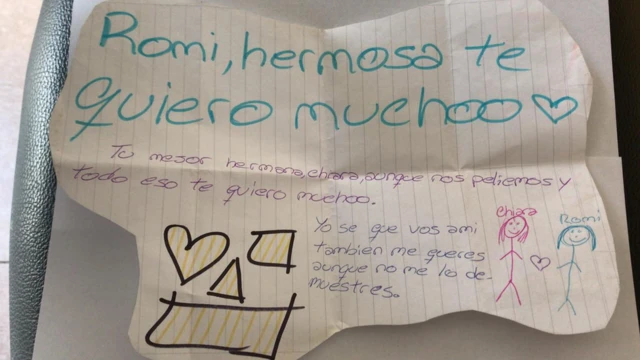 Romi, hermosa te
quiero muchoo
Tu mejor hermana, chiara, aunque nos peliemos y
todo eso te quiero muchoo.
Yo se que vos ami
tambien me queres
aunque no me lo de-
muestres.
Chiara
Romi